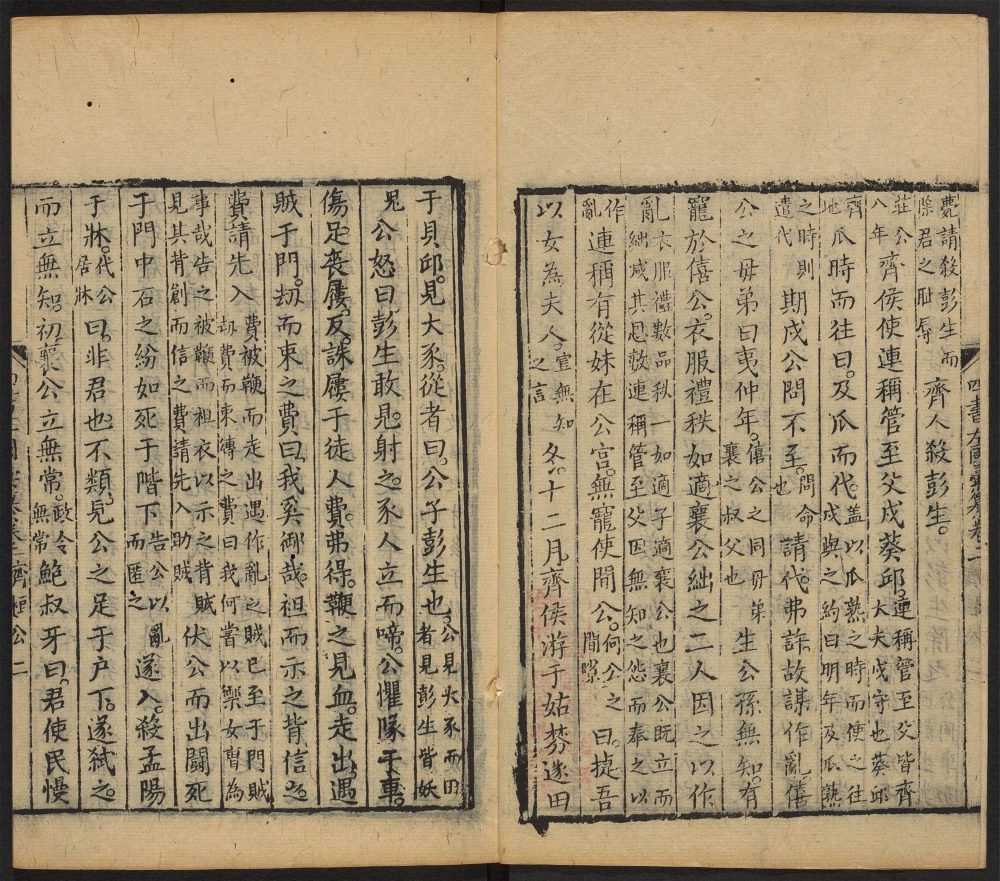 斃請殺彭生而
除君之耻辱 齊人殺彭生。
莊公
八年 齊侯使連稱管至父戍葵邱。連稱管至父皆齊
大夫戍守也葵邱
齊
地 瓜時而往曰。及瓜而代。蓋以瓜熟之時而使之往
戍與之約曰明年及瓜熟
之時則
遣代 期戍公問不至。問命
也 請代。弗許故謀作亂。僖
公之母弟曰夷仲年。僖公之同母弟
襄之叔父也 生公孫無知。有
寵於僖公。衣服禮秩如適襄公絀之二人因之以作
亂衣服禮數品秩一如適子適襄公也襄公既立而
絀減其恩數連稱管至父因無知之怨而奉之以
作
亂 連稱有從妹在公宮。無寵使間公。伺公之
間隙 曰。捷吾
以女為夫人。宣無知
之言 冬。十二月齊侯游于姑棼遂田
于貝邱。見大豕。從者曰。公子彭生也。公見大豕而田
者見彭生皆妖
見 公怒曰。彭生敢見。射之。豕人立而啼。公懼隊于車。
傷足喪屨。反。誅屨于徒人費。弗得。鞭之見血。走出。遇
賊于門。劫而束之費曰。我奚御哉。袒而示之背信之
費請先入 費被鞭而走出遇作亂之賊已至于門賊
劫費而束縛之費曰我何嘗以禦女曹為
事哉告之被鞭而袒衣以示之背賊
見其背創而信之費請先入助賊 伏公而出鬬死
于門中石之紛如死于階下 告公以亂
而匿之 遂入。殺孟陽
于牀。代公
居牀 曰。非君也。不類。見公之足于户下。遂弒之。
而立無知。初。襄公立無常。政令
無常 鮑叔牙曰。君使民慢
齊桓公 二